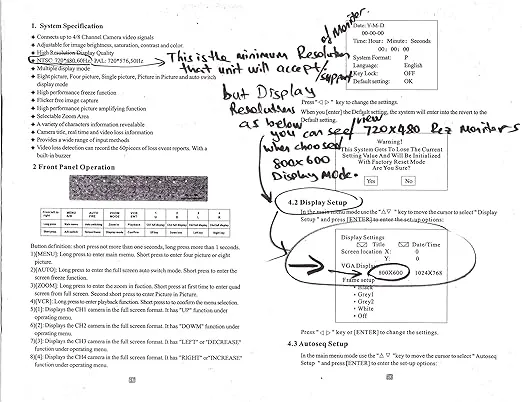 1. System Specification
◆ Connects up to 4/8 Channel Camera video signals
◆ Adjustable for image brightness, saturation, contrast and color.
◆ High Resolution Display Quality
◆ NTSC: 720*480,60Hz PAL: 720*576,50Hz
◆ Multiple display mode
◆ Eight picture, Four picture, Single picture, Picture in Picture and auto switch
display mode
◆ High performance freeze function
◆ Flicker free image capture
◆ High performance picture amplifying function
◆ Selectable Zoom Area
◆ A variety of characters information revealable
◆ Camera title, real time and video loss information
◆ Provides a wide range of input methods
◆ Video loss detection can record the 60pieces of lost event reports. With a
built-in buzzer
2 Front Panel Operation
Button definition: short press not more than one seconds, long press more than 1 seconds.
1)[MENU]: Long press to enter main menu. Short press to enter four picture or eight
picture.
2)[AUTO]: Long press to enter the full screen auto switch mode. Short press to enter the
screen freeze function.
3)[ZOOM]: Long press to enter the zoom in fuction. Short press at first time to enter quad
screen from full screen. Second short press to enter Picture in Picture.
4)[VCR]: Long press to enter playback function. Short press to confirm the menu selection.
5)[1]: Displays the CH1 camera in the full screen format. It has "UP" function under
operating menu.
6)[2]: Displays the CH2 camera in the full screen format. It has "DOWM" function under
operating menu.
7)[3]: Displays the CH3 camera in the full screen format. It has "LEFT" or"DECREASE"
function under operating menu.
8)[4]: Displays the CH4 camera in the full screen format. It has "RIGHT" or"INCREASE"
function under operating menu.
This is the minimum Resolution of Monitor
that unit will accept/support
but Display
Resolution
as below
you can see/view 720x480 Rez Monitors
when choosed
800x600
Display Mode.
Date: Y-M-D
00-00-00
Time: Hour: Minute: Seconds
00: 00: 00
System Format: P
Language: English
Key Lock: OFF
Default setting: OK
Press "◁ ▷" key to change the settings.
When you [enter] the Default setting, the system will enter into the revert to the
Default setting.
Warning!
This System Gets To Lose The Current
Setting Value And Will Be Initialized
With Factory Reset Mode
Are You Sure?
Yes No
4.2 Display Setup
In the main menu mode use the "△ ▽ "key to move the cursor to select "Display
Setup " and press [ENTER] to enter the set up options:
Display Settings
Title Date/Time
Screen location X: 0
Y: 0
VGA Display
800X600 1024X768
Frame setup
• Black
• Grey1
• Grey2
• White
• Off
Press "◁ ▷ " key or [ENTER] to change the settings.
4.3 Autoseq Setup
In the main menu mode use the "△ ▽ "key to move the cursor to select " Autoseq
Setup " and press [ENTER] to enter the set up options: